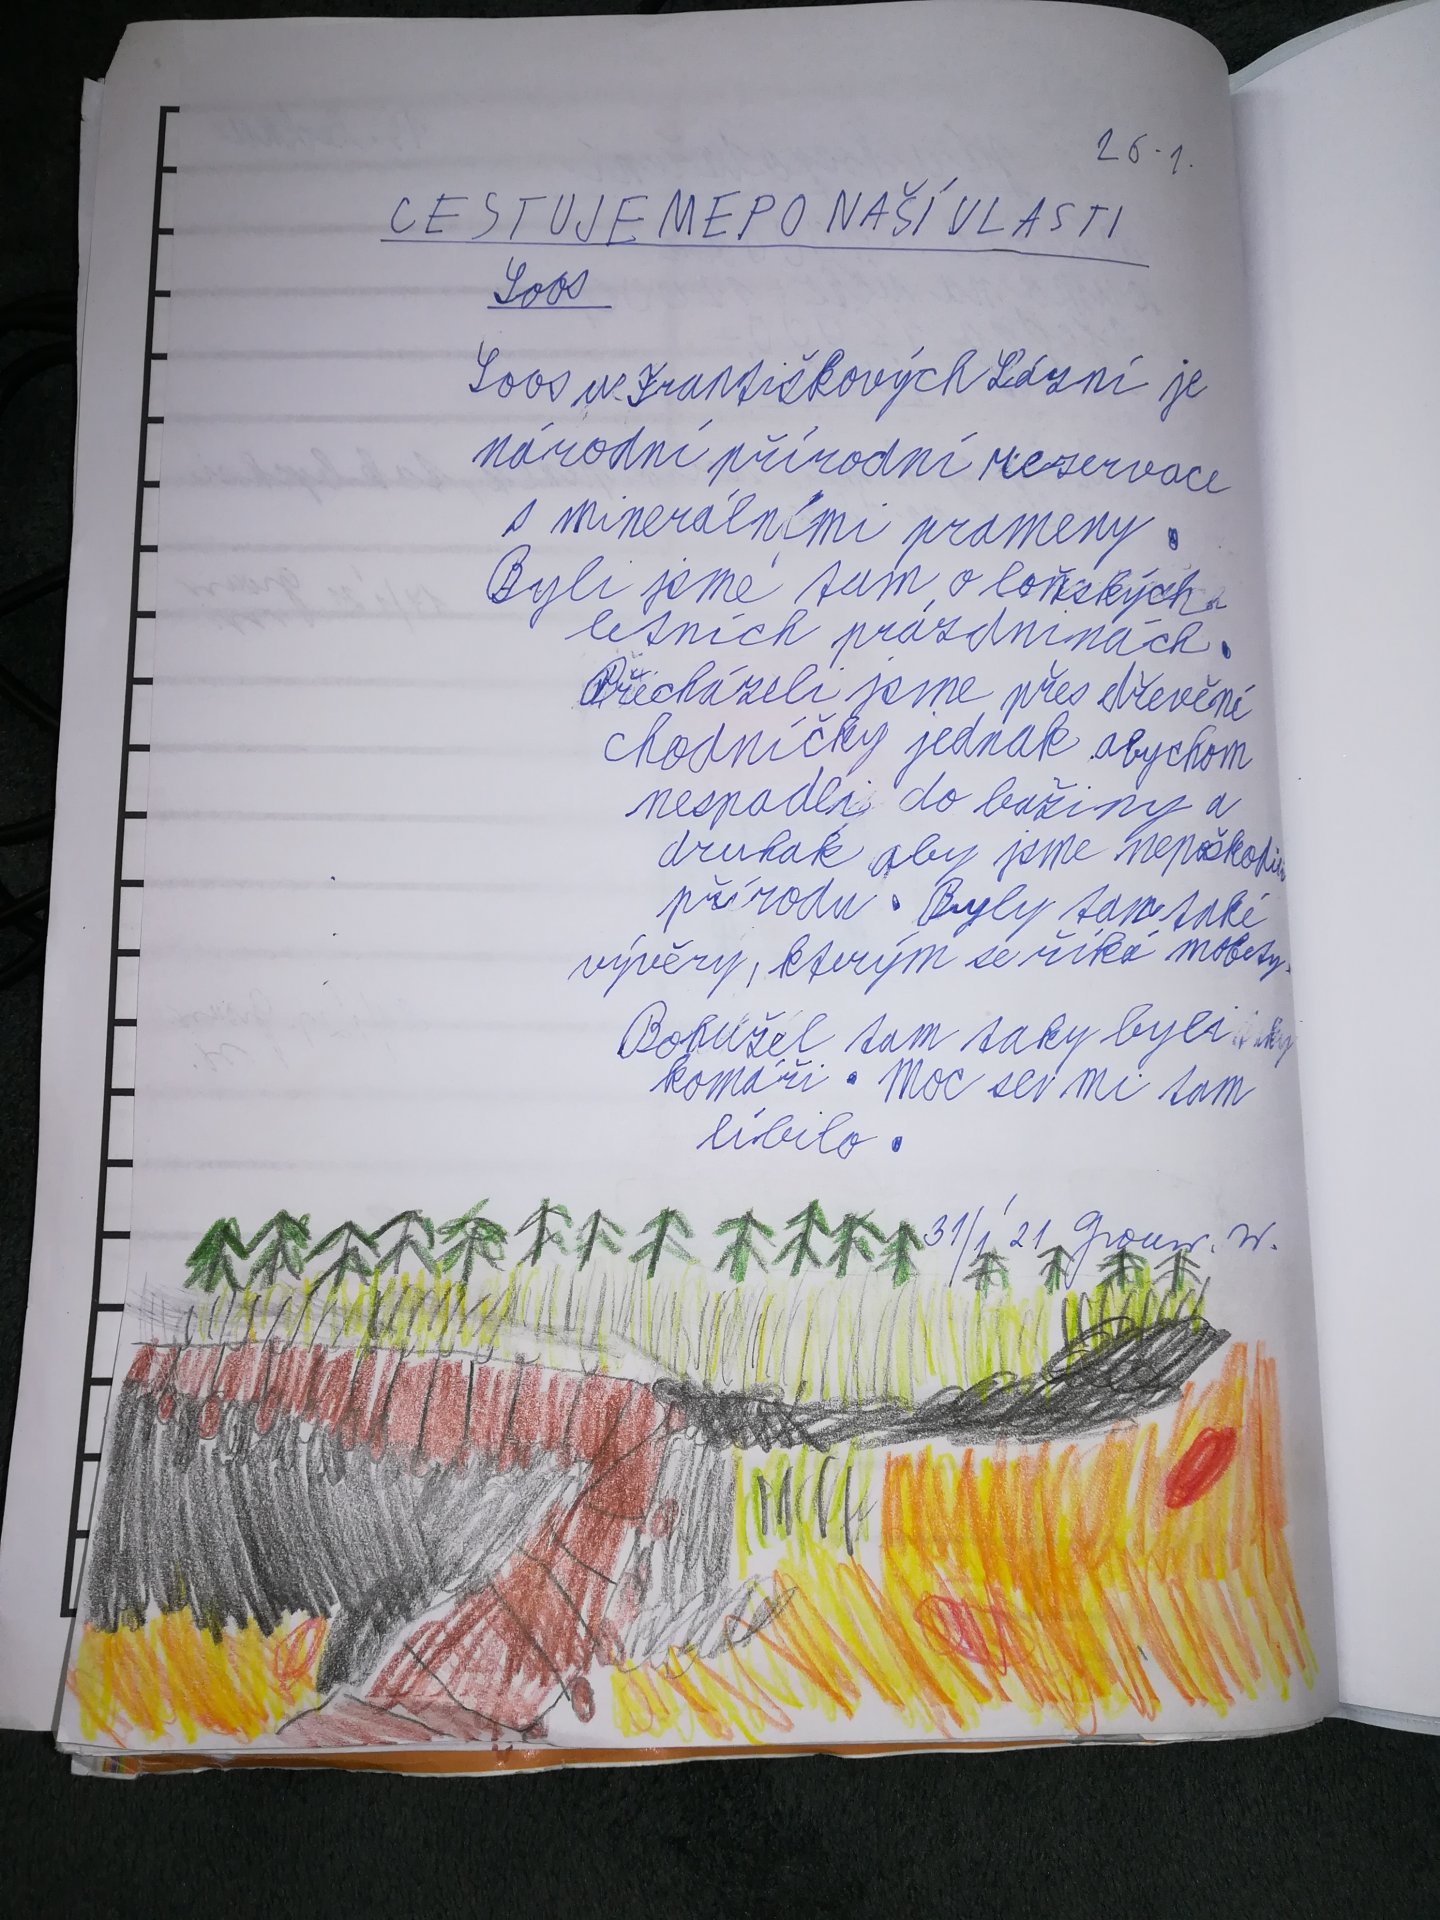 26.1.
CESTUJEME PO NAŠÍ VLASTI
Soos
Soos u Františkových Lázní je
národní přírodní rezervace
s minerálními prameny.
Byli jsme tam o loňských
letních prázdninách.
Přecházeli jsme přes dřevění
chodníčky jednak abychom
nespadli do bažiny a
druhak aby jsme nepoškodili
přírodu. Byly tam také
vývěry, kterým se říká mofety.
Bohužel tam taky byli
komáři. Moc se mi tam
líbilo.
31/1 21